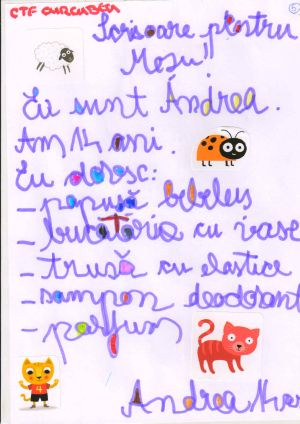 CTF CURCUBEU
5
Scrisoare pentru
Moșu"
Eu sunt Andrea.
Am 14 ani.
Eu doresc:
- păpușă bebeluș
- bucătărie cu vase
- trusă cu elastice
- șampon deodorant
- parfum
Andrea